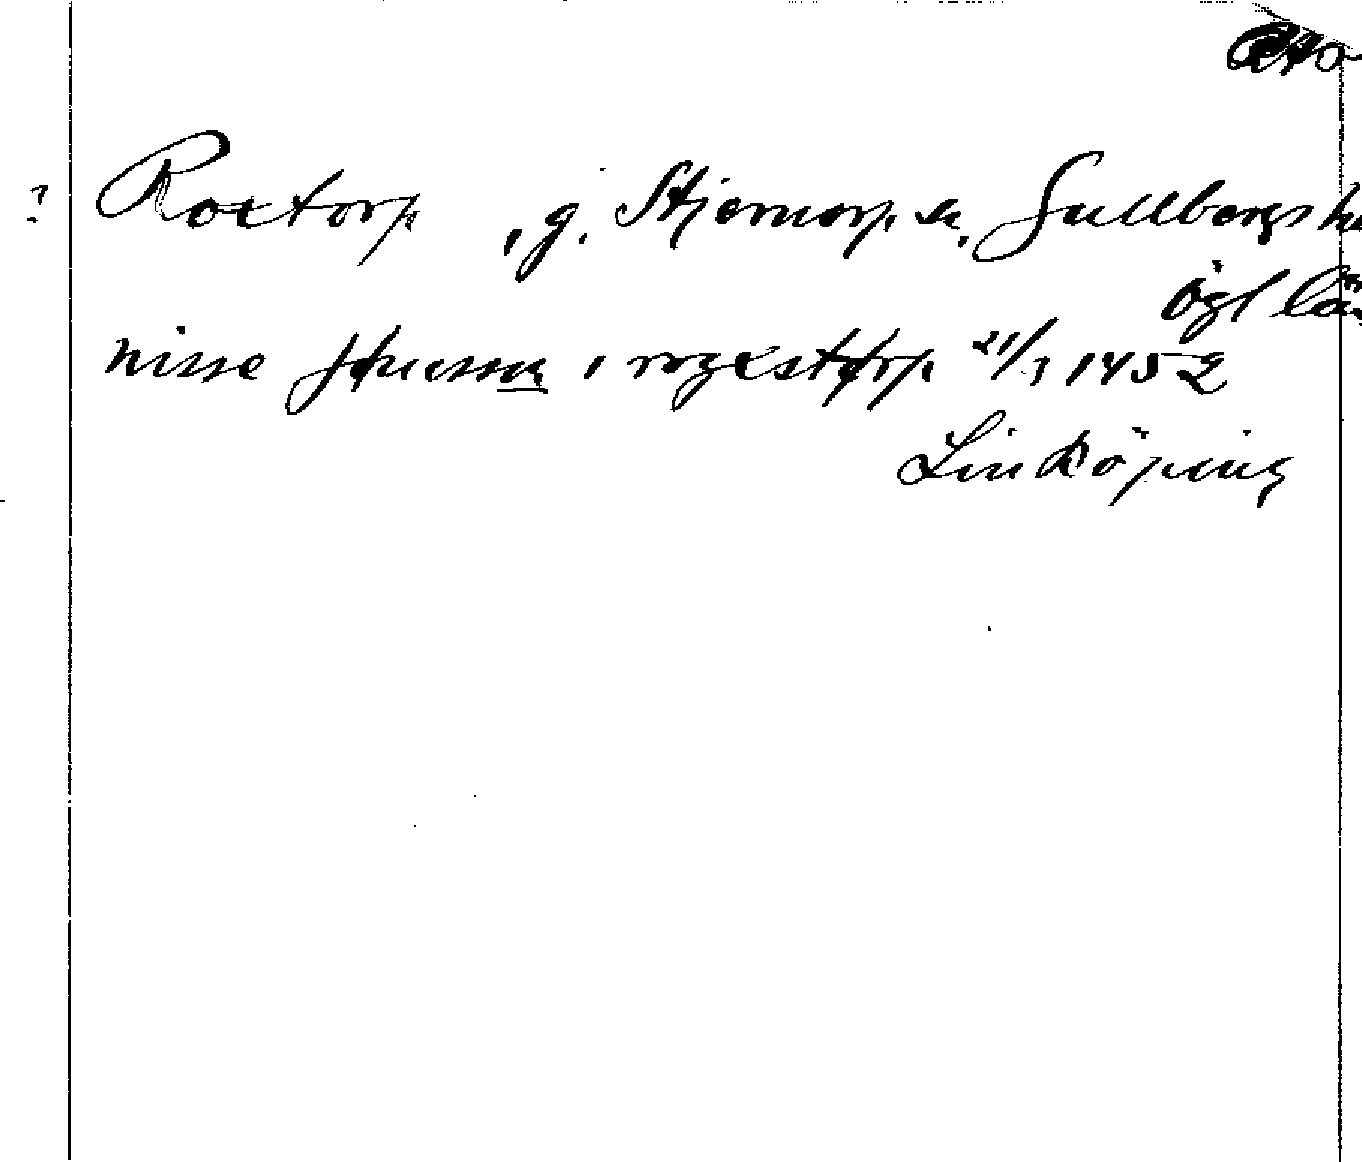 ? Roxtorp, g. Stjernorp sn, Gullbergs hd
Ögl län
nisse jønsson i rogxstørp 21/3 1452
Linköping